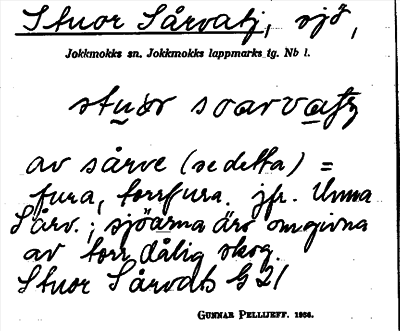 Stuor Sårvatj, sjö,
Jokkmokks sn. Jokkmokks lappmarks tg. Nb l.
stuor soarvatj
av sårve (se detta) =
fura, torrfura. jfr. Unna
Sårv.; sjöarna äro omgivna
av torr dålig skog.
Stuor Sårvats G 21
GUNNAR PELLIJEFF. 1966.